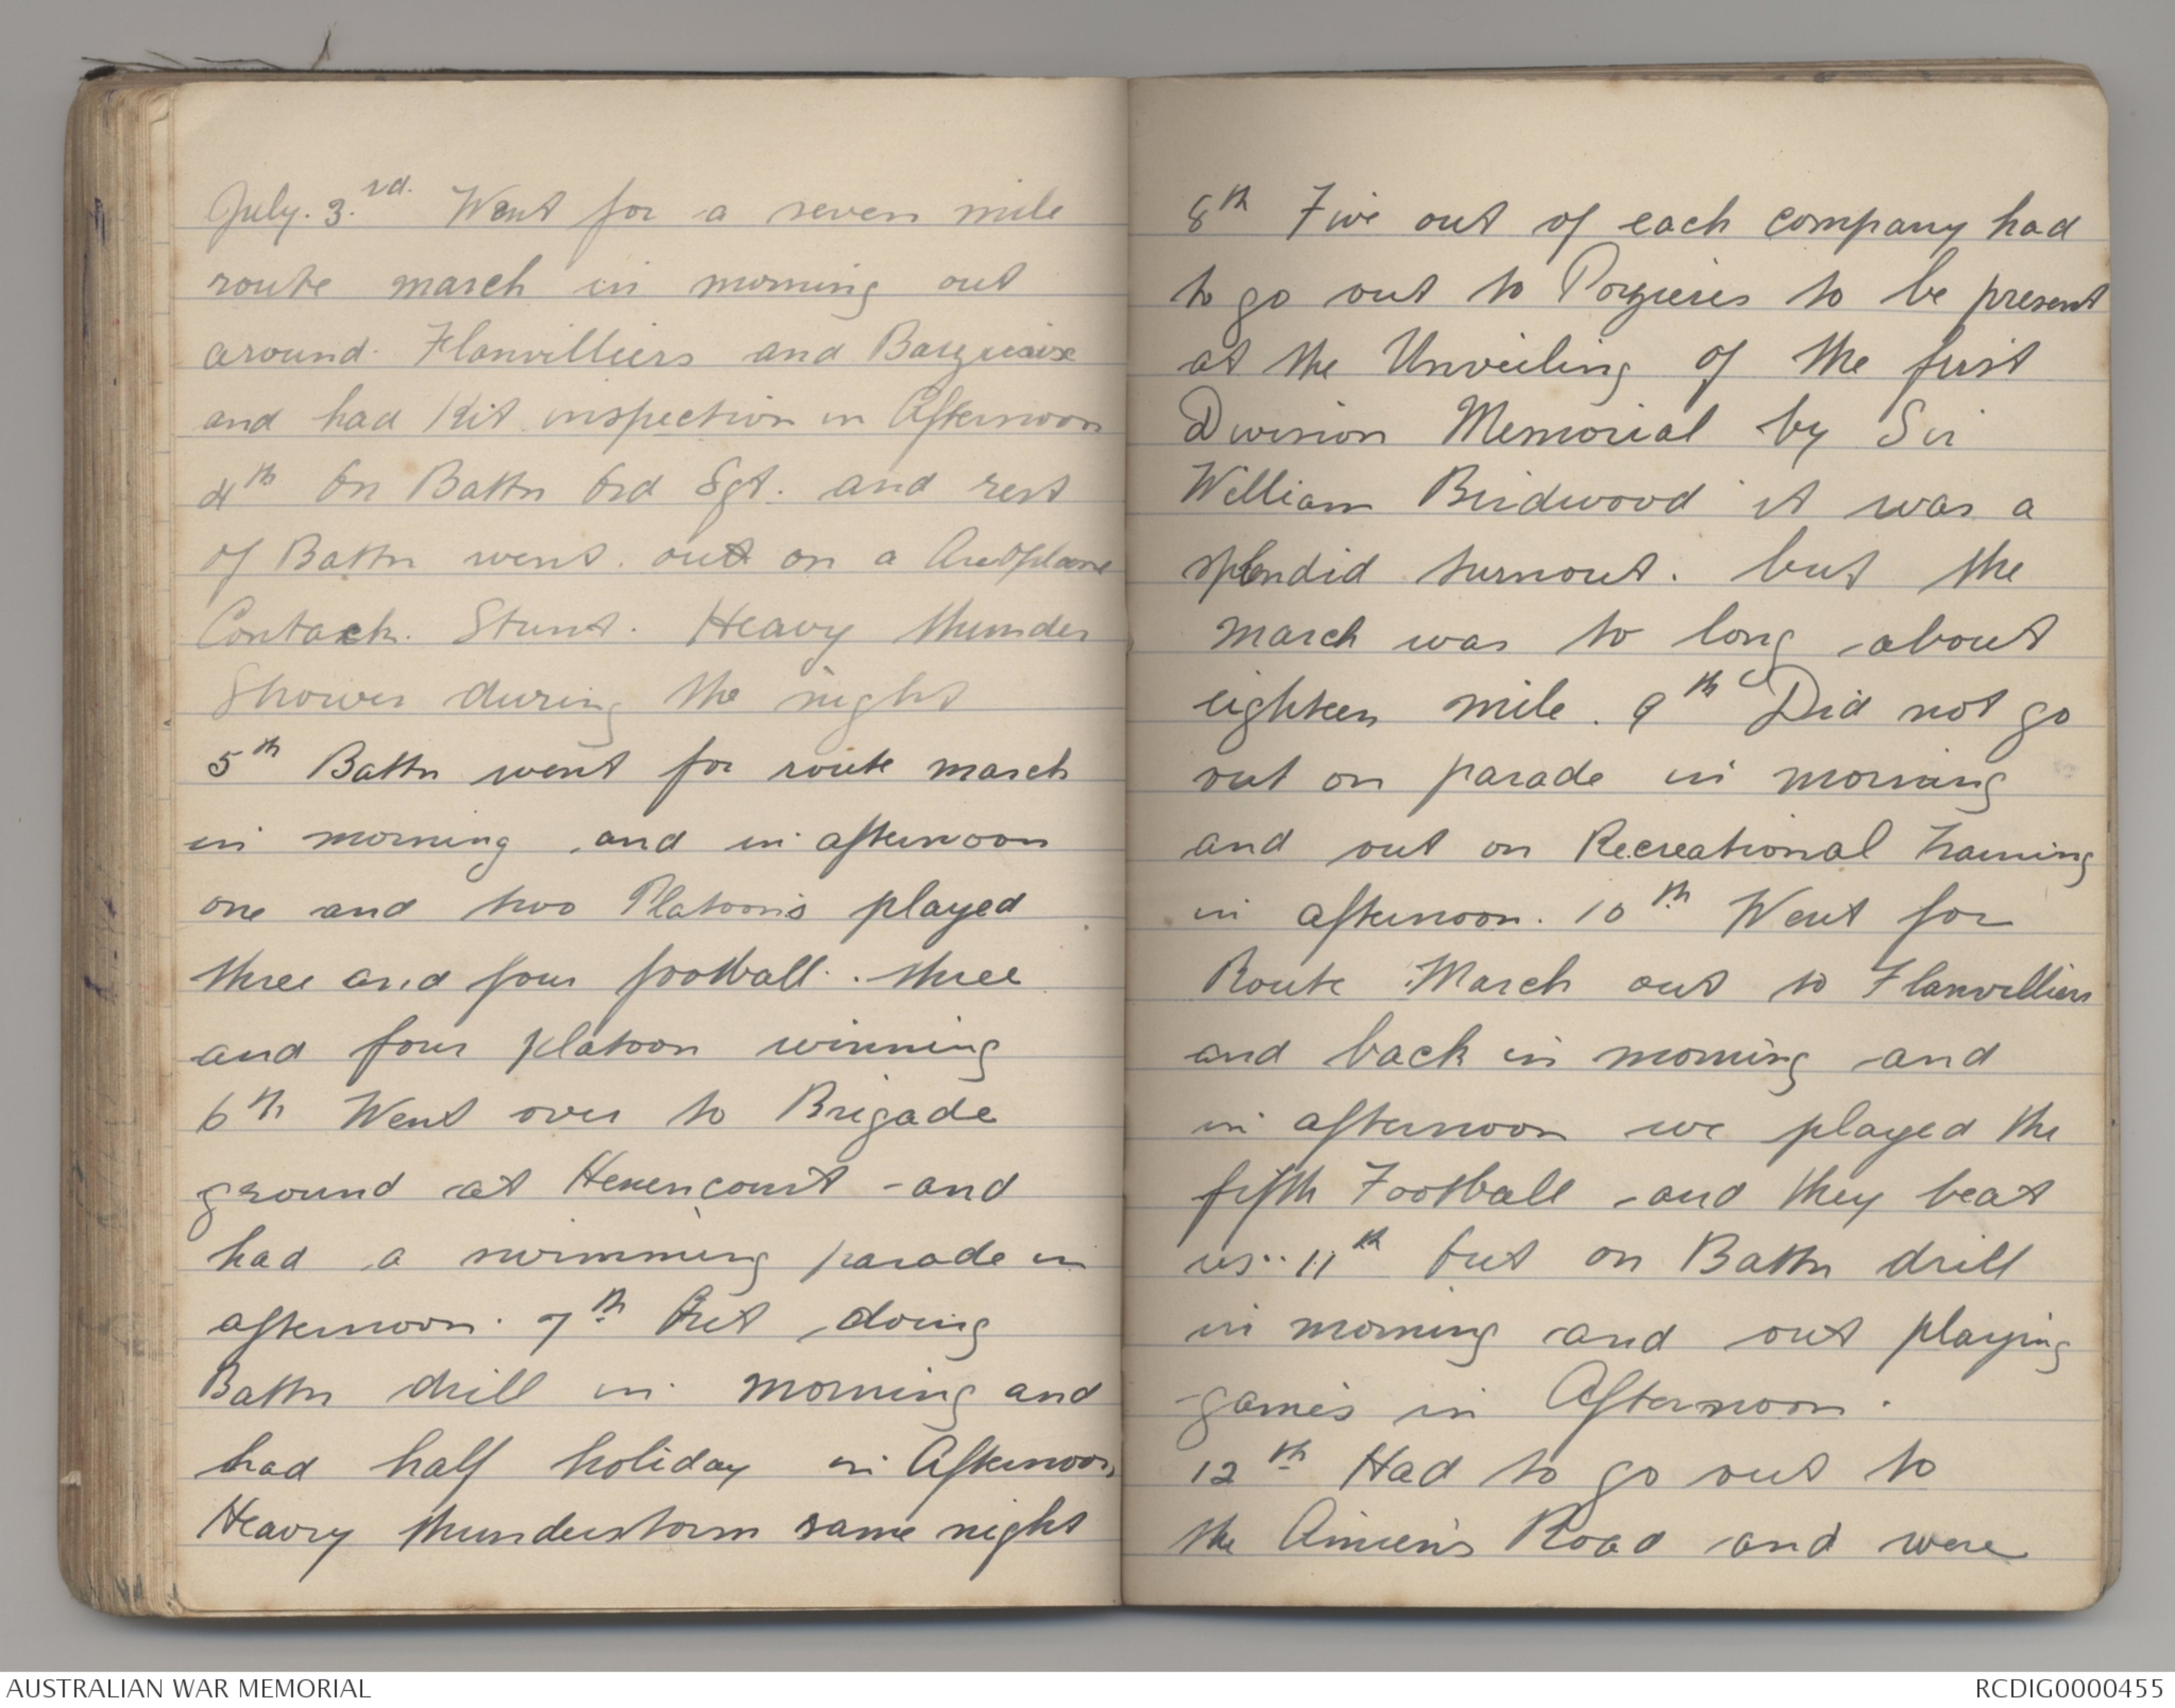 July. 3.rd. Went for a seven mile
route march in morning out
around. Flanvilliers and
and had Kit inspection in Afternoon
4th On Battn Ord Sgt. and rest
of Battn went. out on a
Contack. Stunt. Heavy thunder
Shower during the night
5th Battn went for route march
in morning and in afternoon
one and two Platoons played
three and four football. three
and four platoon winning
6th Went over to Brigade
ground at Henencourt and
had a swimming parade in
afternoon. 7th Out doing
Battn drill in morning and
had half holiday in Afternoon
Heavy thunderstorm same night
8th Five out of each company had
to go out to Pozieres to be present
at the Unveiling of the first
Division Memorial by Sir
William Birdwood it was a
splendid turnout. but the
march was to long about
eighteen mile. 9th Did not go
out on parade in morning
and out on Recreational Training
in afternoon. 10th Went for
Route March out to Flanvilliers
and back in morning and
in afternoon we played the
fifth Football and they beat
us.. 11th Out on Battn drill
in morning and out playing
games in Afternoon.
12th Had to go out to
the Amiens Road and were
AUSTRALIAN WAR MEMORIAL
RCDIG0000455